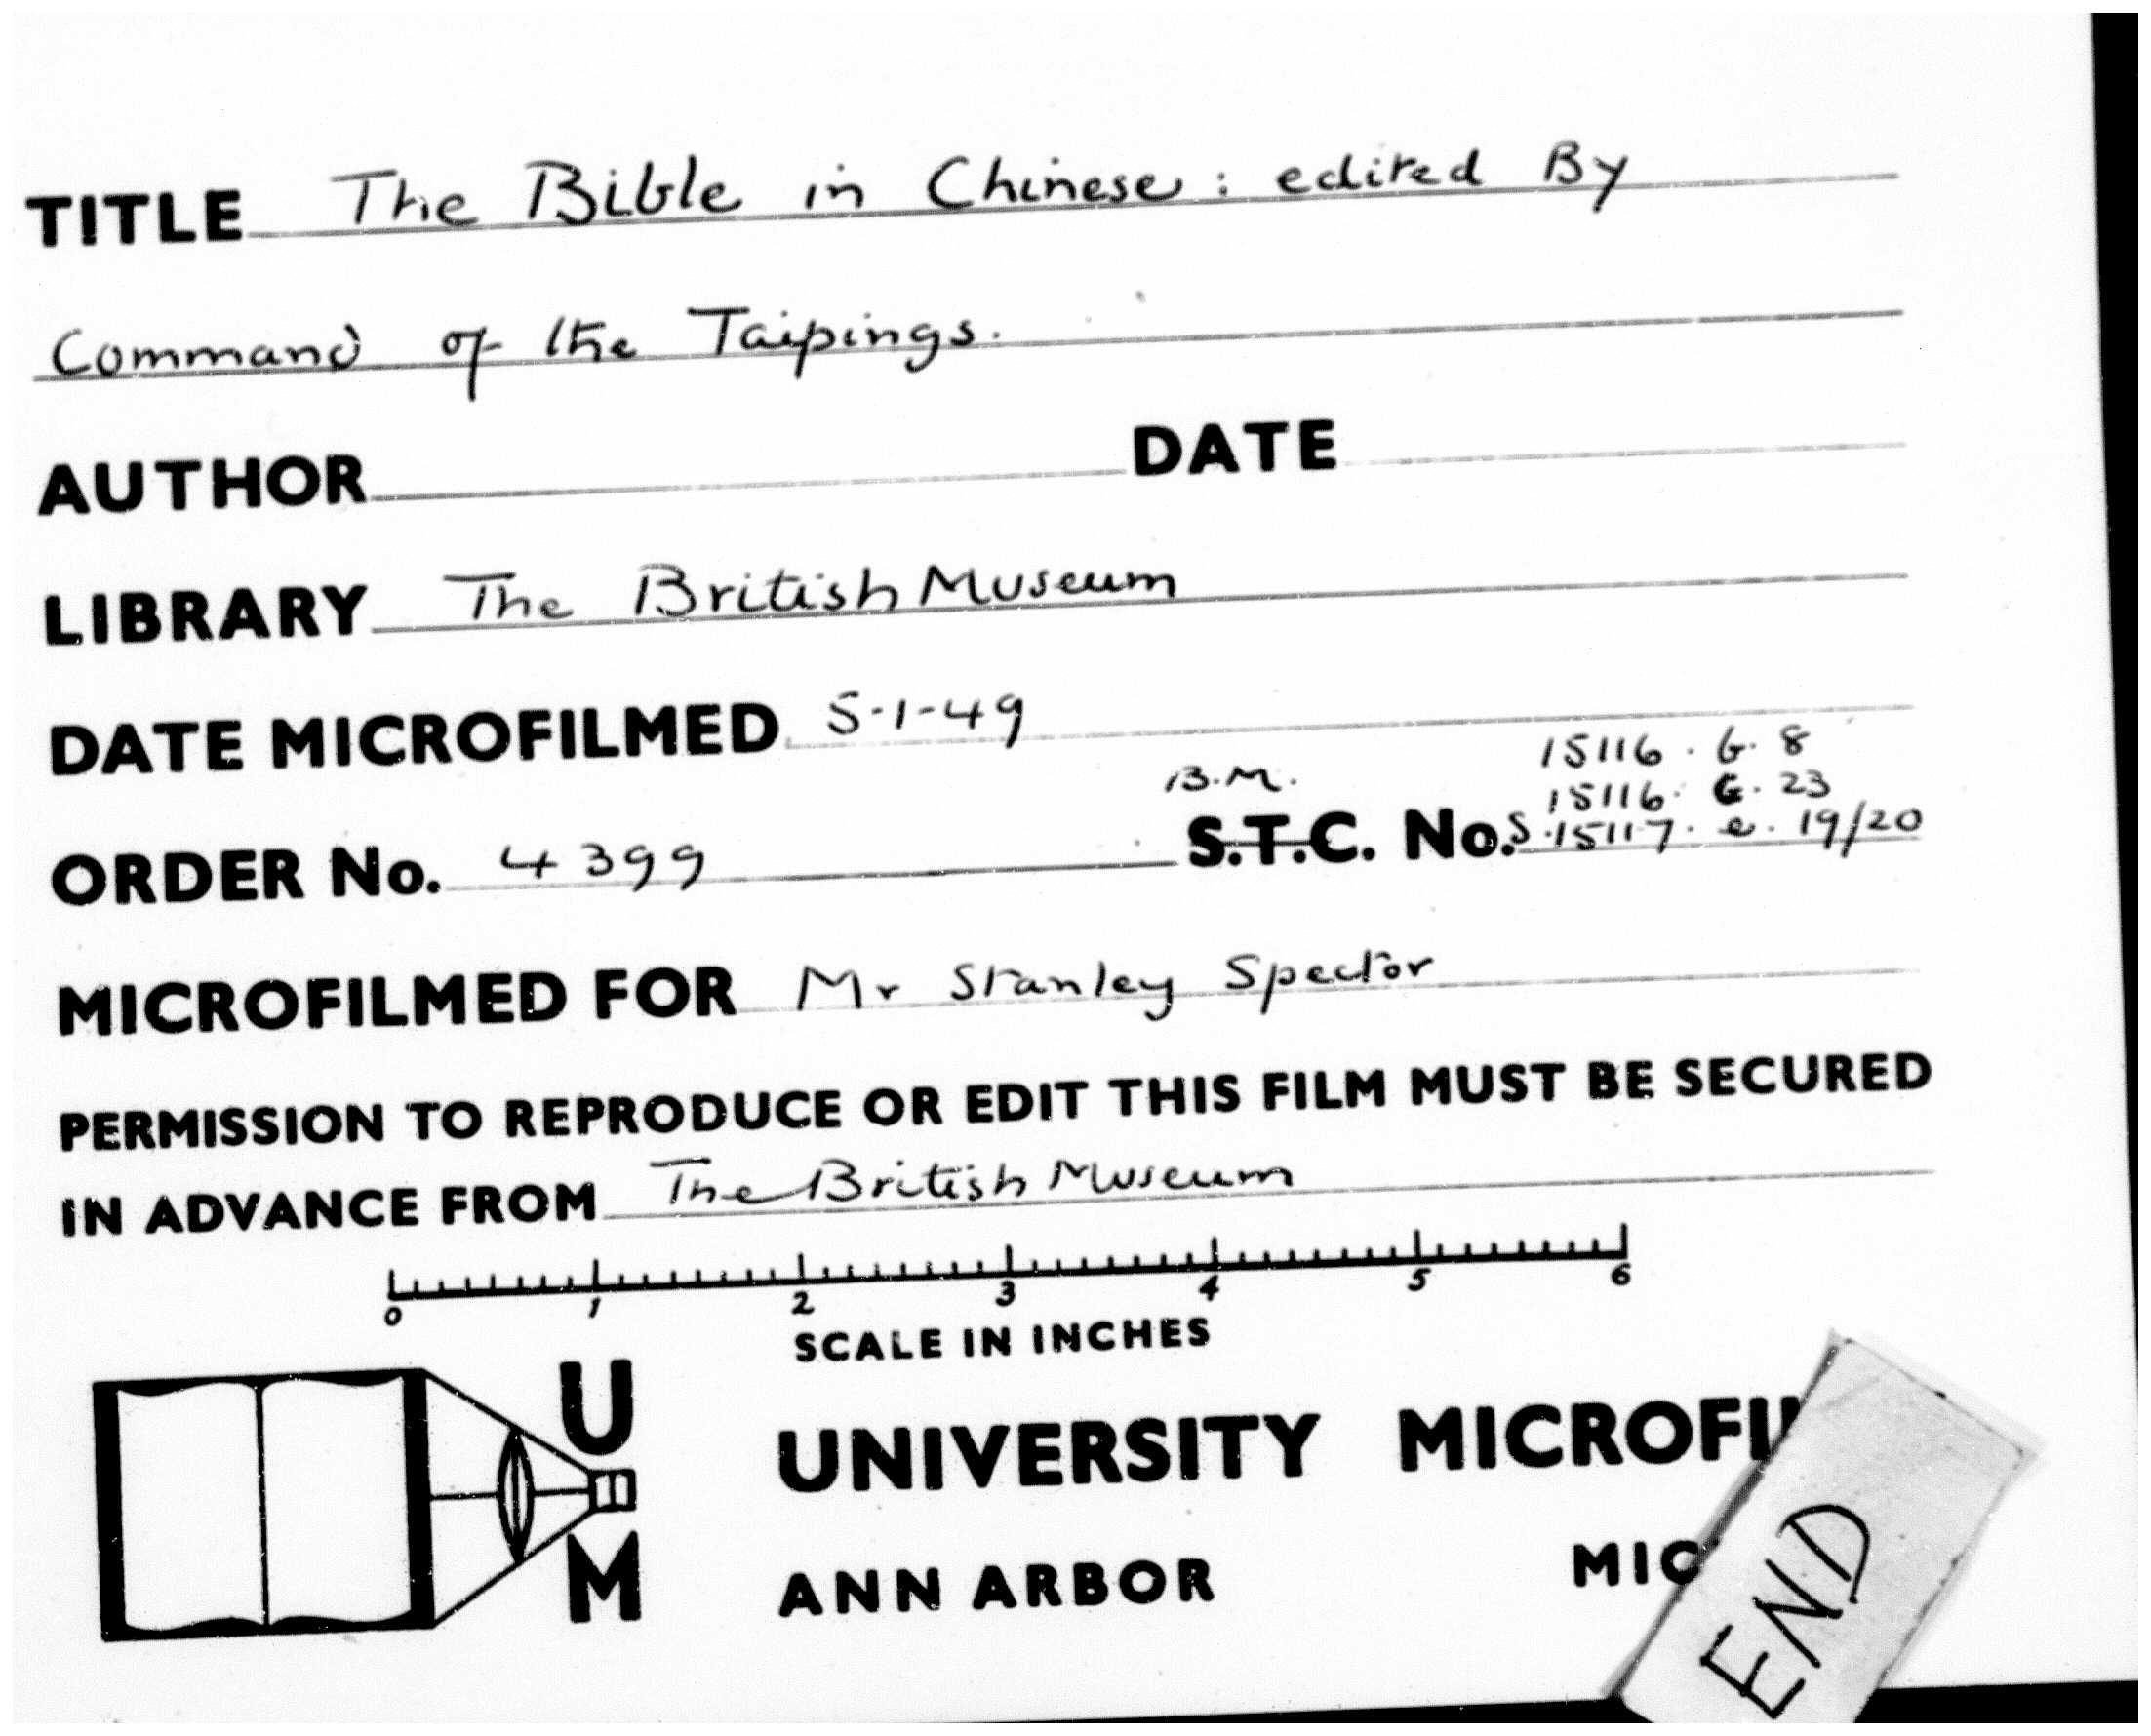 TITLE The Bible in Chinese: edited By
Command of the Taipings.
AUTHOR DATE
LIBRARY The British Museum
DATE MICROFILMED 5-1-49
15116. G. 8
B.M. 15116. G. 23
ORDER No. 4399 S.T.C. Nos. 15117. e. 19/20
MICROFILMED FOR Mr Stanley Spector
PERMISSION TO REPRODUCE OR EDIT THIS FILM MUST BE SECURED
IN ADVANCE FROM The British Museum
0 1 2 3 4 5 6
SCALE IN INCHES
U
UNIVERSITY MICROFI
M
ANN ARBOR MIC
END